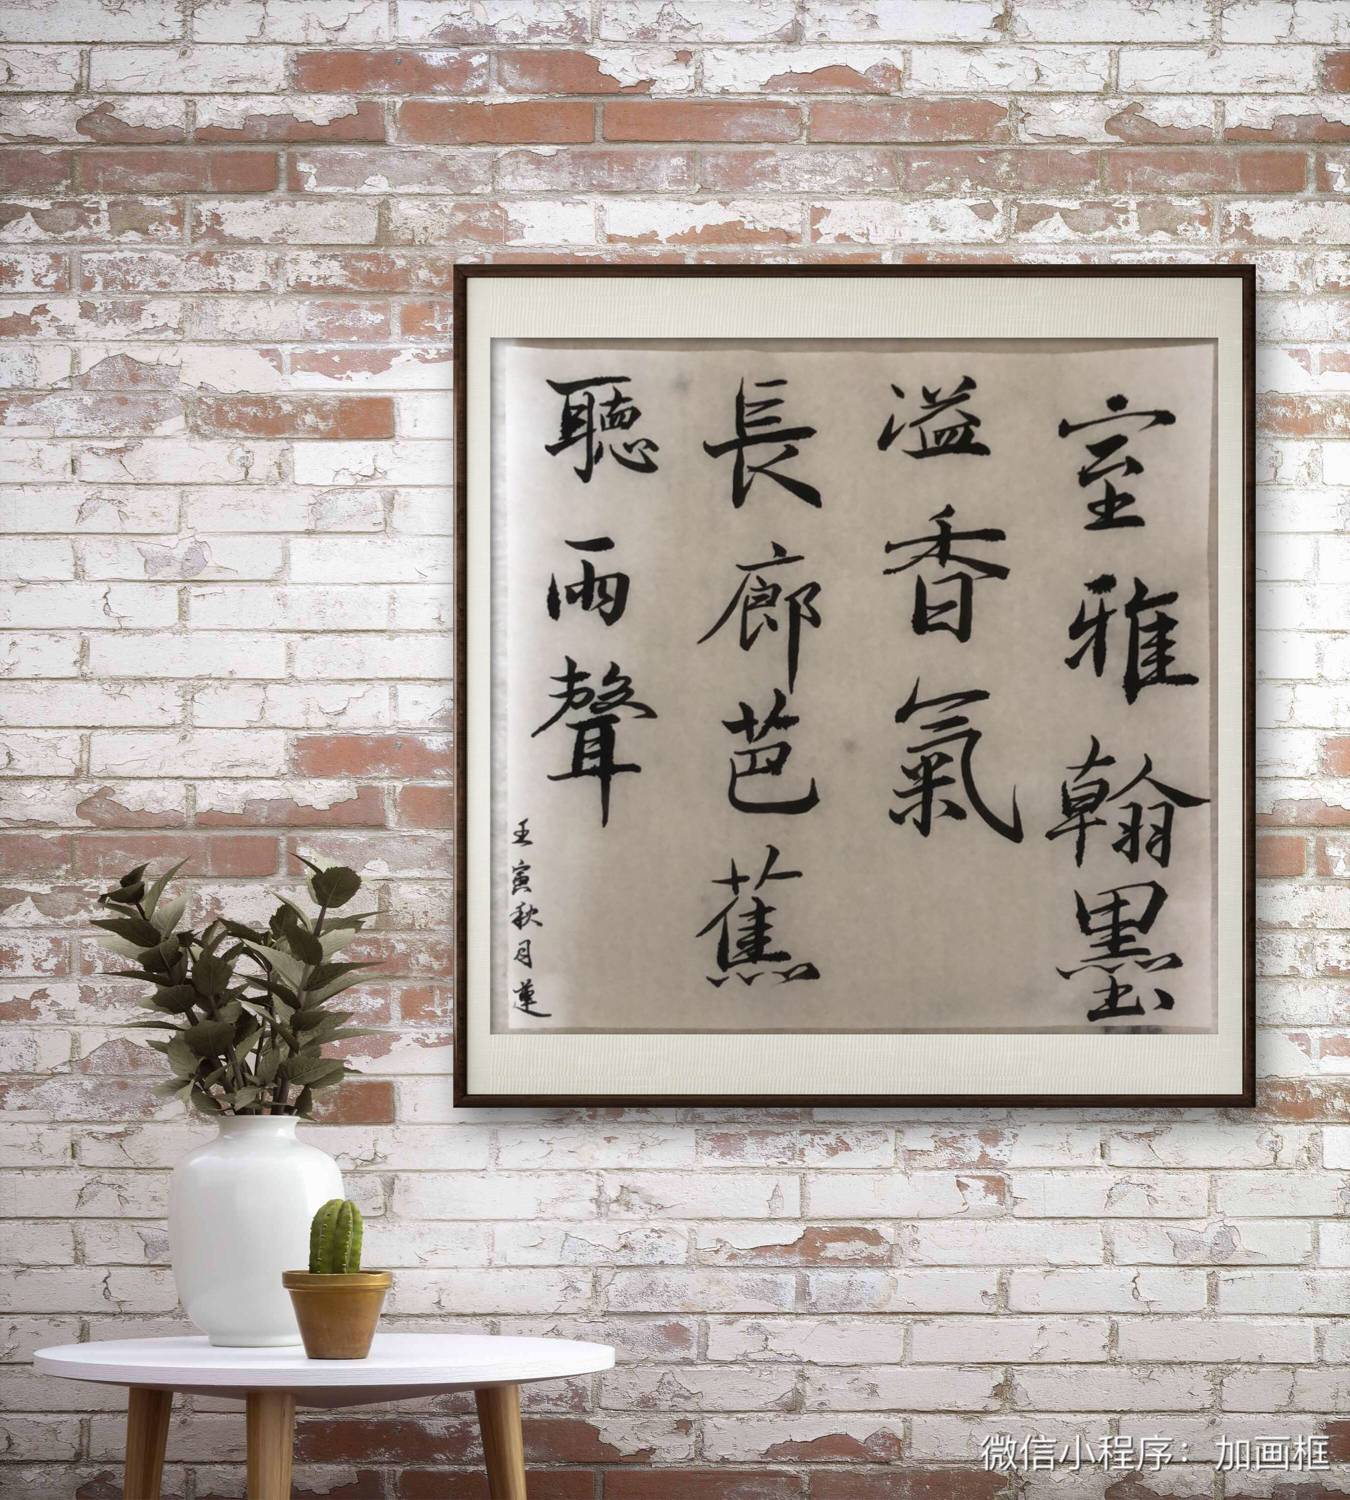 室雅翰墨
溢香氣
長廊芭蕉
聽雨聲
壬寅秋月蓮
微信小程序：加画框